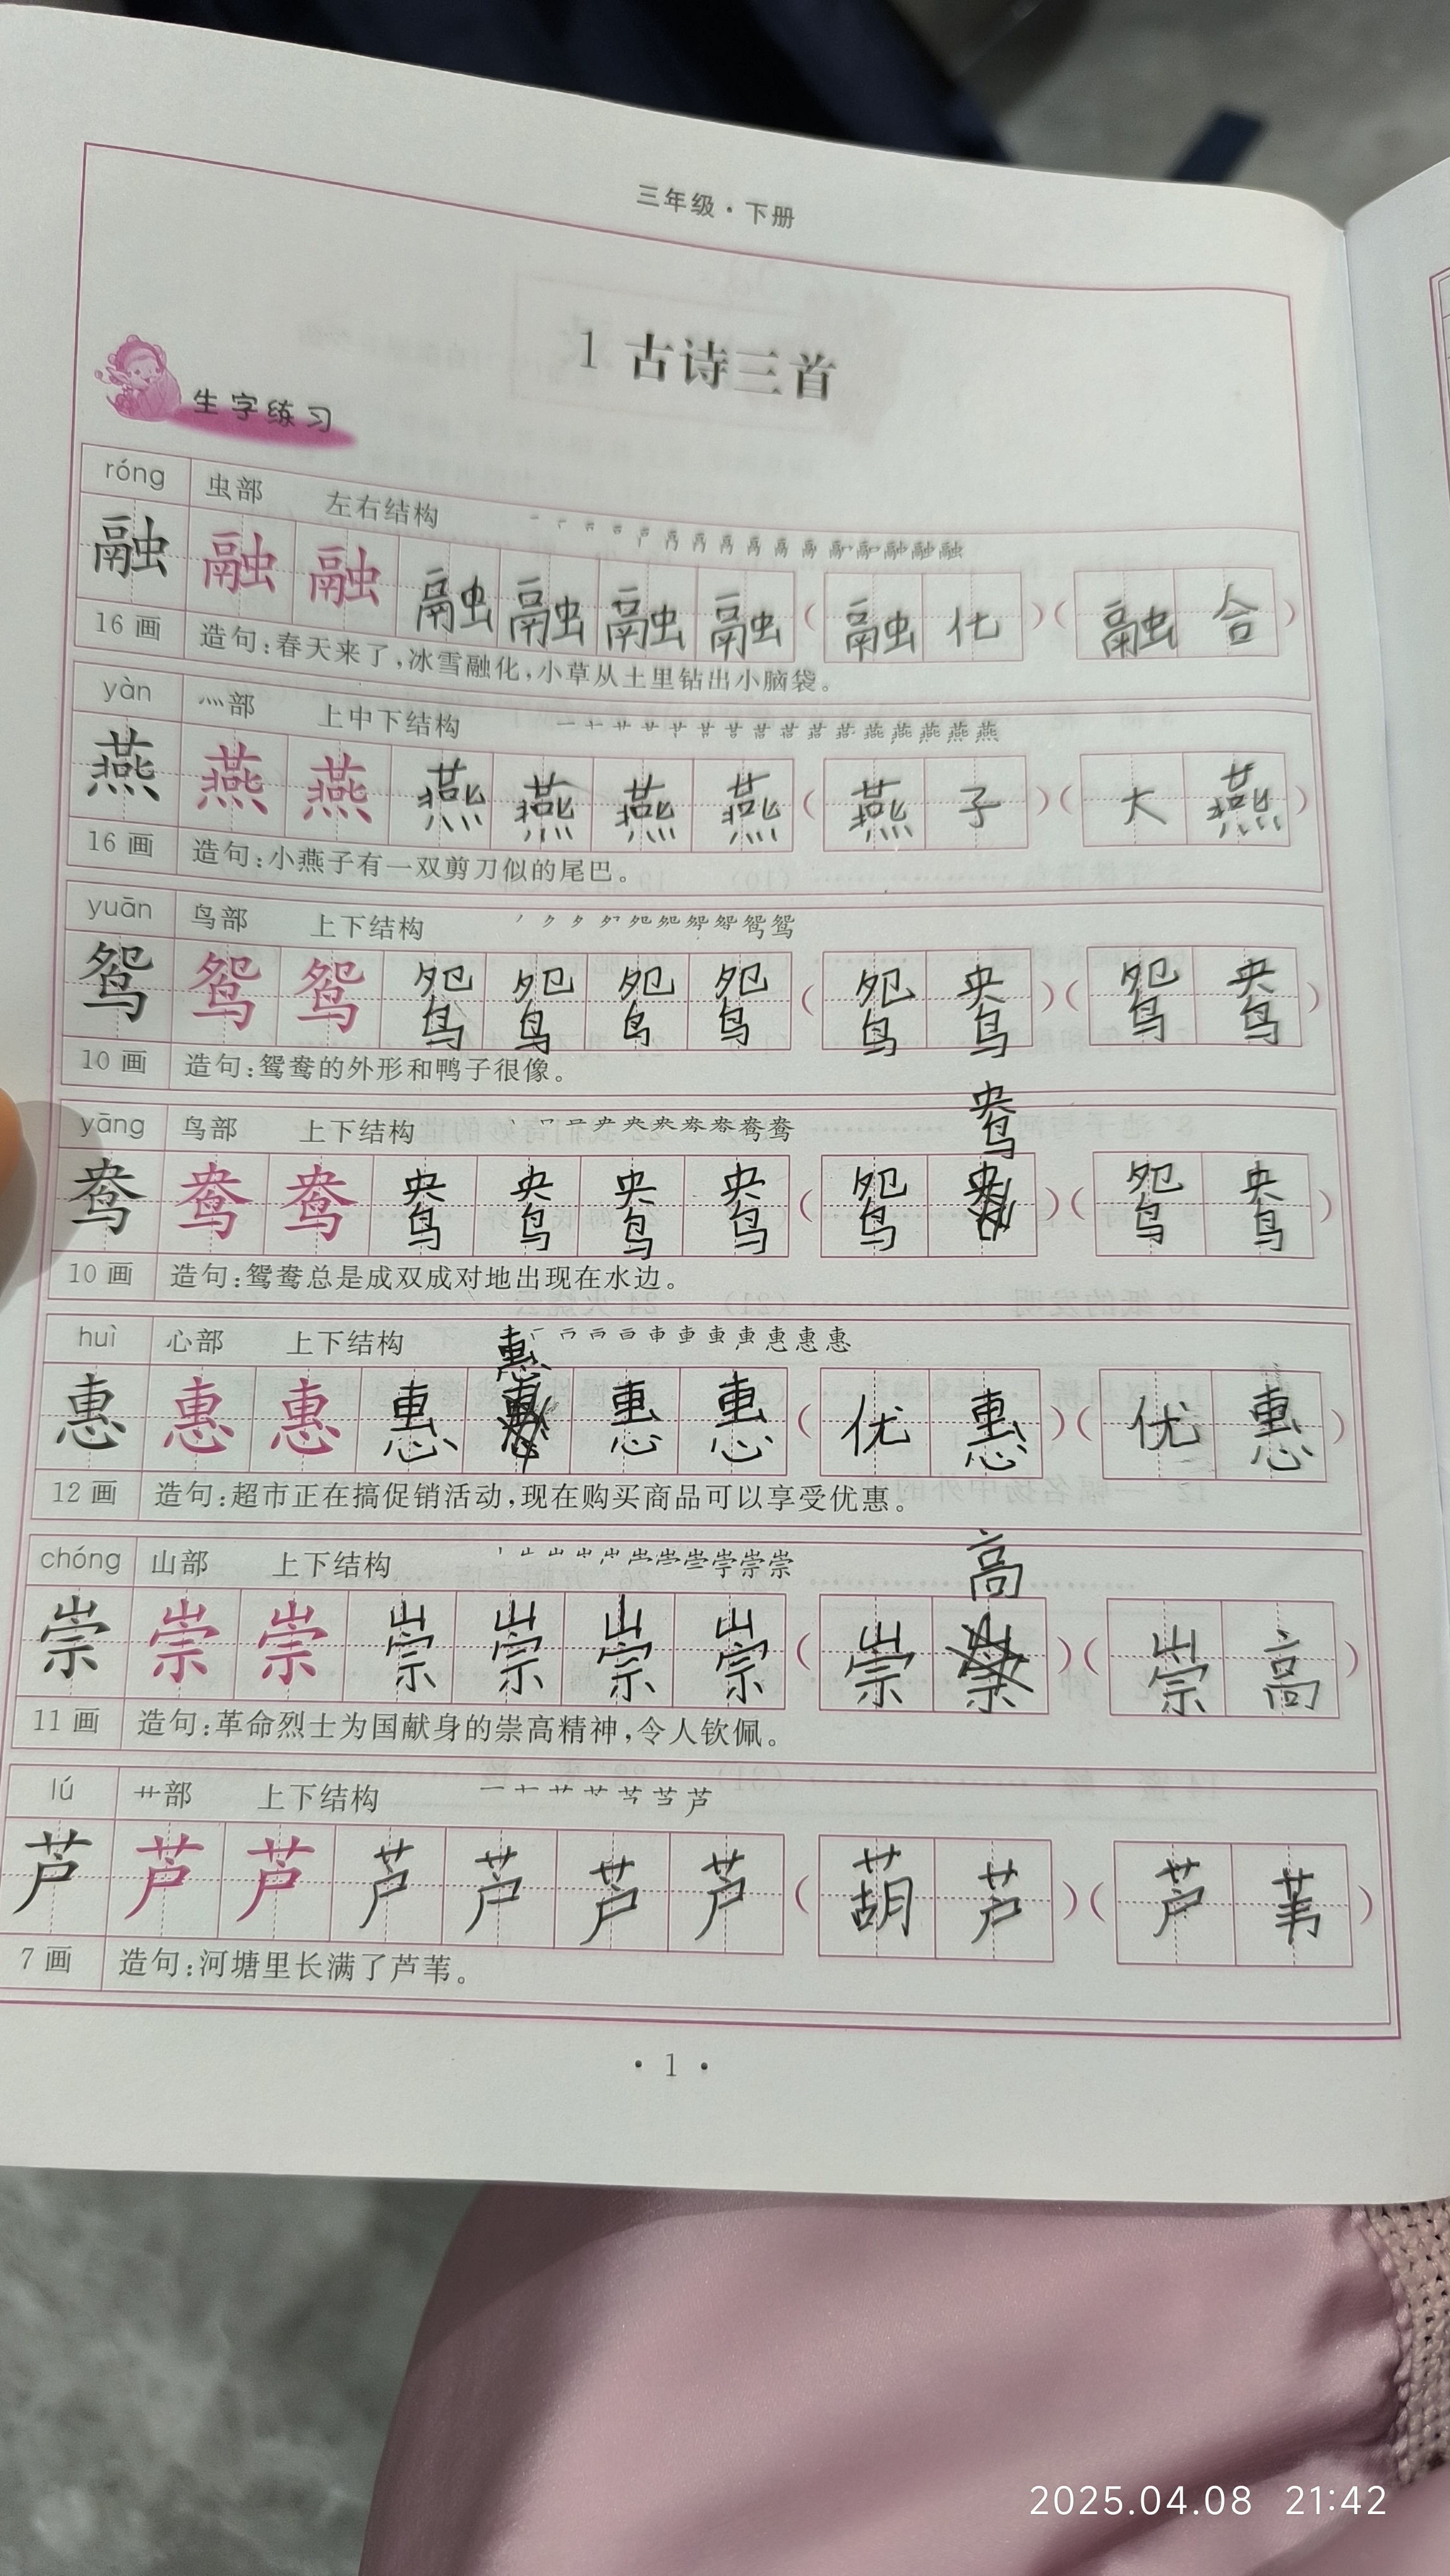 三年级·下册
1 古诗三首
生字练习
róng 虫部 左右结构
融 融 融 融 融 融 融 (融化)(融合)
16画 造句:春天来了,冰雪融化,小草从土里钻出小脑袋。
yàn 灬部 上中下结构
燕 燕 燕 燕 燕 燕 燕 (燕子)(大燕)
16画 造句:小燕子有一双剪刀似的尾巴。
yuān 鸟部 上下结构
鸳 鸳 鸳 鸳 鸳 鸳 鸳 (鸳鸯)(鸳鸯)
10画 造句:鸳鸯的外形和鸭子很像。
鸯
yāng 鸟部 上下结构
鸯 鸯 鸯 鸯 鸯 鸯 鸯 (鸳)(鸳鸯)
10画 造句:鸳鸯总是成双成对地出现在水边。
huì 心部 上下结构 惠
惠 惠 惠 惠 惠 惠 (优惠)(优惠)
12画 造句:超市正在搞促销活动,现在购买商品可以享受优惠。
chóng 山部 上下结构 高
崇 崇 崇 崇 崇 崇 崇 (崇)(崇高)
11画 造句:革命烈士为国献身的崇高精神,令人钦佩。
lú 艹部 上下结构
芦 芦 芦 芦 芦 芦 芦 (葫芦)(芦苇)
7画 造句:河塘里长满了芦苇。
·1·
2025.04.08 21:42